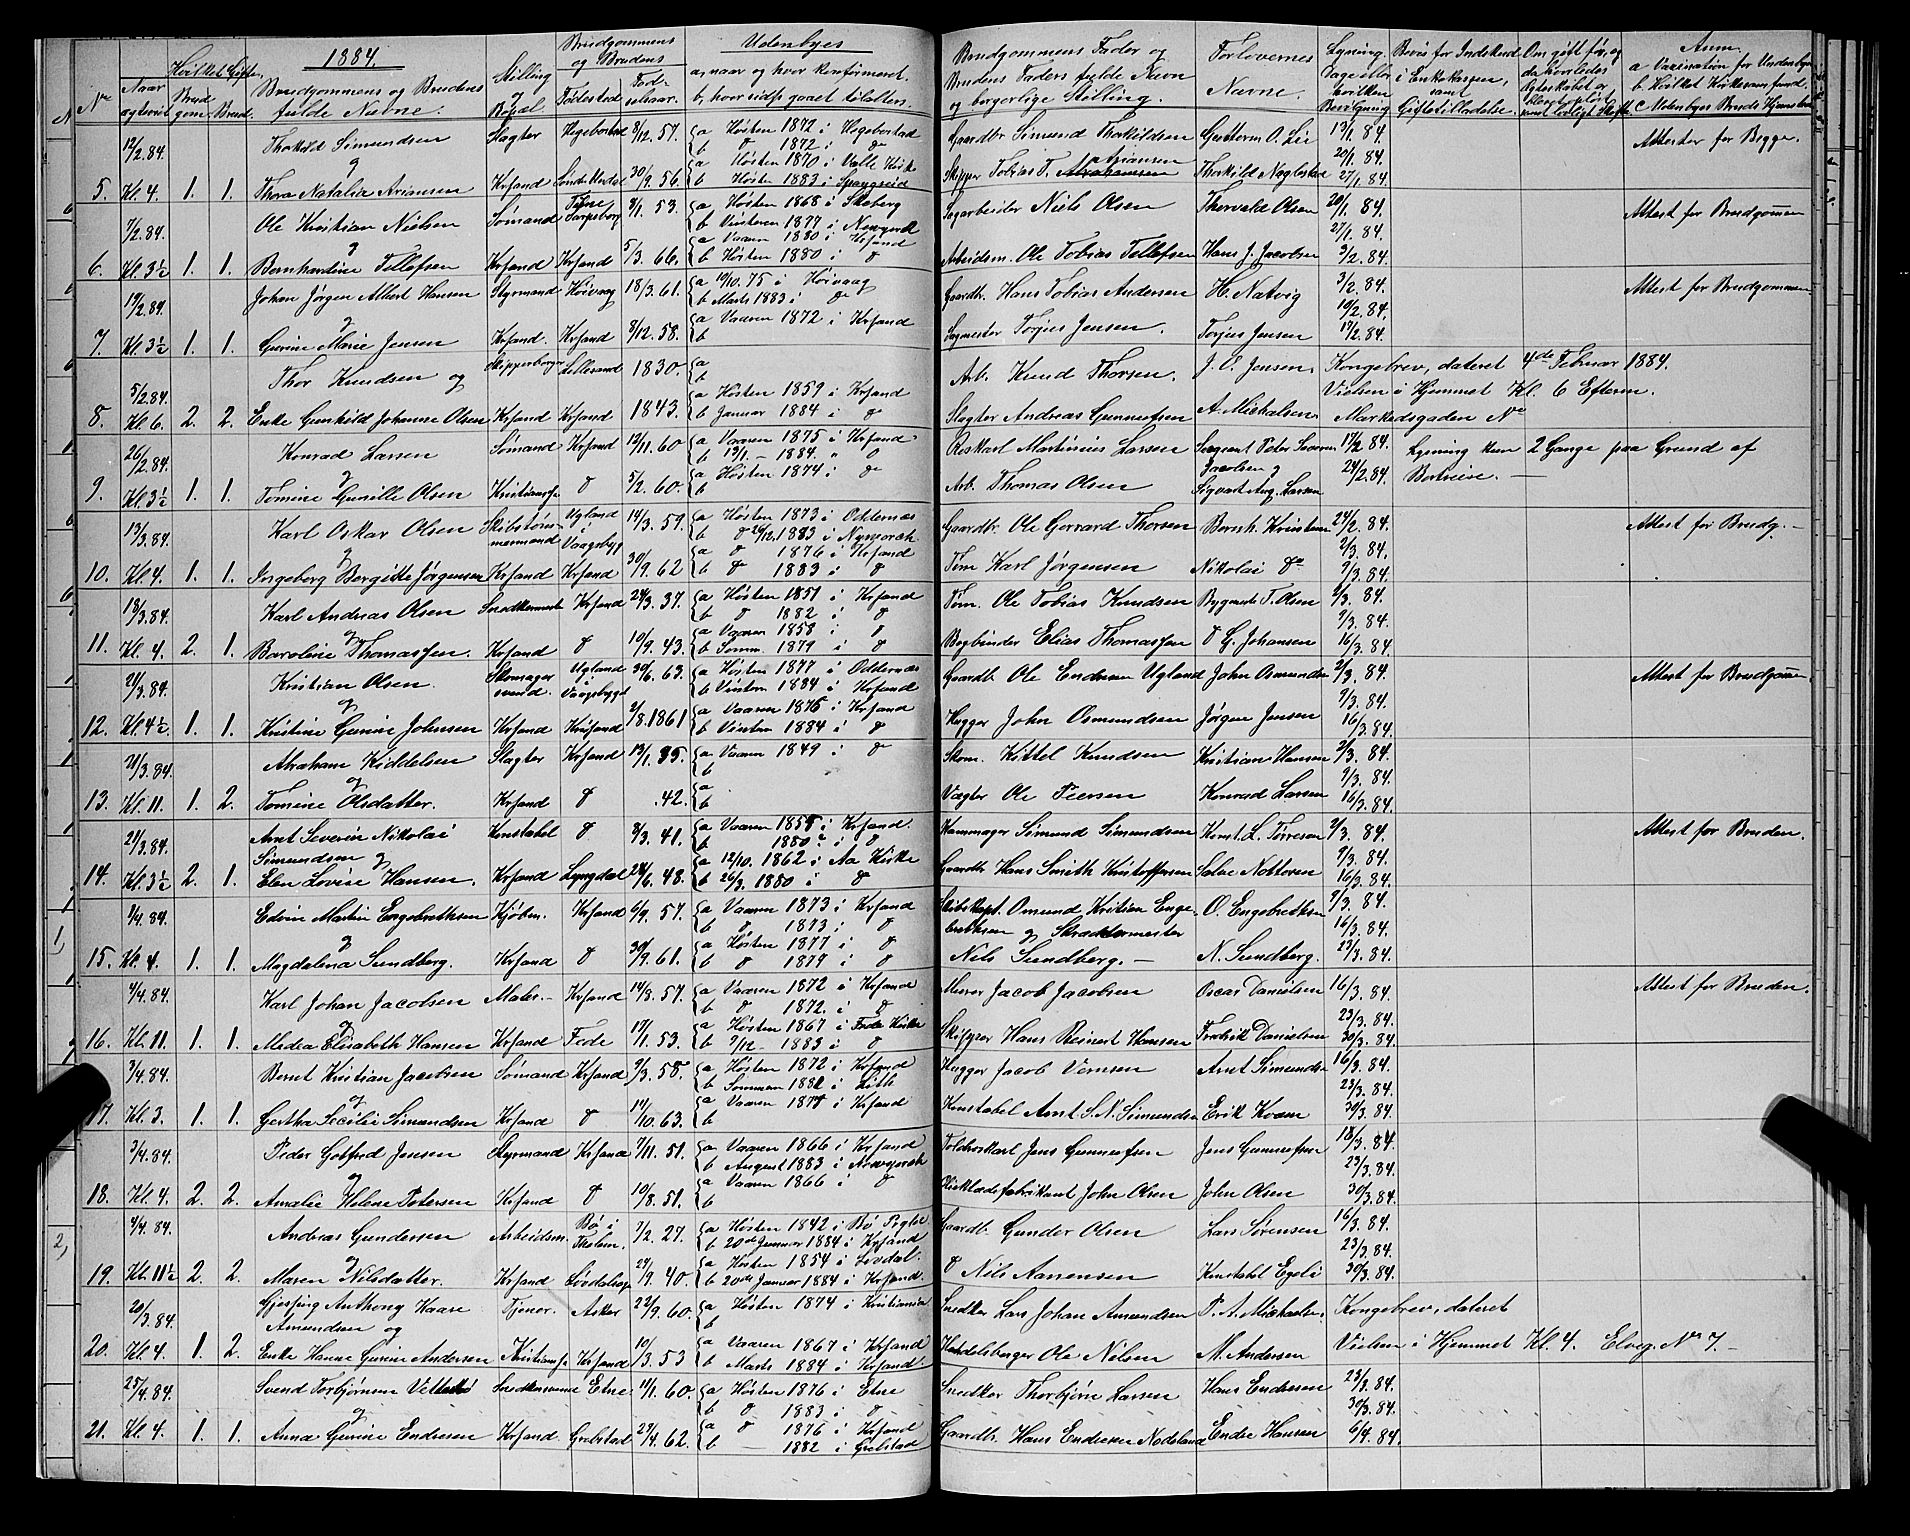 1884.
No
Naar agtevict
Hvilket Gifte,
Brudgom. Brud.
Brudgommens og Brudens fulde Navne.
Stilling og Bopæl
Brudgommens og Brudens
Fødested Fødselsaar.
Udenbyes
a, naar og hvor konfirmeret.
b, hvor sidst gaaet til alters.
Brudgommens Fader og Brudens Faders fulde Navn og borgerlige Stilling.
Forlovernes Navne.
Lysnings Dage eller hvilken Bevilgning
Bevis for Indskud i Enkekassen, samt Giftetilladelse.
Om gift før, og da hvorledes Ægteskabet er
Anm.
a Vaccination for Udenbys
b. Hvilket Kirkesamfund.
c Udenbyes Bruds Hjemstavn
12/2.84. Thorkild Simundsen Slagter Hegebostad 8/12.57. a Høsten 1872 i Hegebostad Gaardbr. Simund Thorkildsen Guttorm O. Lie 13/1.84. Attester for Begge.
og b do 1872 i do 20/1.84.
5. Kl. 4. 1. 1. Thora Natalia Ariansen Krsand Søndre Undal 30/9.56. a Høsten 1870 i Valle Kirke b Høsten 1883 i Spangereid Skipper Tobias T. Ariansen Thorkild Nagelstad 27/1.84.
7/2.84. Ole Kristian Nielsen Sømand Tune Sarpsborg 8/1.53. a Høsten 1868 i Skeberg Sagarbeider Niels Olsen Thorvald Olsen 20/1.84. Attest for Brudgommen
og b Vinteren 1877 i Newyorck 27/1.84.
6. Kl. 3½ 1. 1. Bernhardine Tellefsen Krsand Krsand 5/3.66. a Vaaren 1880 i Krsand b Høsten 1880 i do Arbeidsm. Ole Tobias Tellefsen Hans J. Jacobsen 3/2.84.
19/2.84. Johan Jørgen Albert Hansen Styrmand Høivaag 18/3.61. a 10/10.75 i Høivaag Gaardbr. Hans Tobias Andersen H. Natvig 3/2.84. Attest for Brudgommen.
og b Marts 1883 i do 10/2.84.
7. Kl. 3½ 1. 1. Gurine Marie Jensen Krsand. Krsand 8/12.58. a Vaaren 1872 i Krsand b Sagmester Torjus Jensen. Torjus Jensen 17/2.84.
5/2.84. Thor Knudsen og Skipperborger Lillesand 1830. a b Arb. Knud Thorsen. J. C. Jensen. Kongebrev, dateret 4de Februar 1884.
Vielsen i Hjemmet Kl. 6 Efterm.
8. Kl. 6. 2. 2. Enke Gunhild Johanne Olsen Krsand Krsand 1843. a Høsten 1859 i Krsand b Januar 1884 i do Slagter Andreas Gunnufsen A. Michalsen Markedsgaden No
26/2.84. Konrad Larsen Sømand Krsand 12/11.60 a Vaaren 1875 i Krsand Roskarl Martinius Larsen Sergeant Peder Severin 17/2.84. Lysning kun 2 Gange paa Grund af
og b 13/1 - 1884. " Jacobsen og
9. Kl. 3½ 1. 1. Tomine Gunille Olsen Kristians. do 5/2.60. a Høsten 1874 i do b Arb. Thomas Olsen Sigvart Aug. Larsen 24/2.84. Bortreise.
13/3.84. Karl Oskar Olsen Skibstømmermand Ugland i Vaagsbyg 14/3.57. a Høsten 1873 i Oddernæs Gaardbr. Ole Gerrard Thorsen Bernh. Kristensen 24/2.84. Attest for Brudg.
og b do 26/12.1883 i Newyorck 2/3.84.
10. Kl. 4. 1. 1. Ingeborg Bergitte Jørgensen Krsand Krsand 30/9.62 a do 1876 i Krsand b do 1883 i do Tøm. Karl Jørgensen Nikolai do 9/3.84.
18/3.84. Karl Andreas Olsen Snedkermester Krsand 24/3.37. a Høsten 1851 i Krsand Tøm. Ole Tobias Knudsen Bygmester T. Olsen 2/3.84.
og b do 1882 i do 9/3.84.
11. Kl. 4. 2. 1. Baroline Thomassen. Krsand do 10/9.43. a Vaaren 1858 i do b Somm. 1879 i do Bogbinder Elias Thomassen do G. Johansen 16/3.84.
21/3.84. Kristian Olsen. Skomagersvend. Ugland i Vaagsbygd 30/6.63. a Høsten 1877 i Oddernæs Gaardb. Ole Endresen Ugland John Osmundsen 2/3.84. Attest for Brudgommen.
og b Vinteren 1884 i Krsand 9/3.84.
12. Kl. 4½ 1. 1. Kristine Gurine Johnsen Krsand Krsand 2/8.1861 a Vaaren 1876 i Krsand b Vinteren 1884 i do Hugger John Osmundsen Jørgen Jensen 16/3.84.
21/3.84. Abraham Kiddelsen Slagter Krsand 13/1.35. a Vaaren 1849 i do b Skom. Kittel Knudsen Kristian Hansen 2/3.84.
og 9/3.84.
13. Kl. 11. 1. 2. Tomine Olsdatter. Krsand do .42. a b Vægter Ole Peersen Konrad Larsen 16/3.84.
21/3.84. Arnt Severin Nikolai Simundsen og Konstabel do 3/3.41. a Vaaren 1855 i Krsand. b 1880 i do Kammager Simund Simundsen Konst. L. Tørresen 2/3.84. Attest for Bruden.
9/3.84.
14. Kl. 3½ 2. 1. Elen Lovise Hansen. Krsand Lyngdal 24/6.48. a 12/10.1862 i Aa Kirke b 26/3.1880 i do Gaardb. Hans Smith Kristoffersen Salve Nottesen 16/3.84.
1/4.84. Edvin Martin Engebrethsen Kjøbm. Krsand 6/9.57. a Vaaren 1873 i Krsand Skibskapt. Omund Kristian Enge- O. Engebrethsen 9/3.84.
og b do 1873 i do brethsen og Skraddermester 16/3.84.
15. Kl. 4. 1. 1. Magdalena Sundberg. Krsand do 30/9.61. a Høsten 1877 i do b do 1879 i do Nils Sundberg. N. Sundberg. 23/3.84.
4/4.84. Karl Johan Jacobsen Maler. Krsand 14/8.57. a Vaaren 1872 i Krsand Murer Jacob Jacobsen Oscar Danielsen 16/3.84. Attest for Bruden.
og b do 1872. i do 23/3.84.
16. Kl. 11. 1. 1. Medea Elisabeth Hansen Krsand Fede 17/1.53. a Høsten 1867 i Fede Kirke b 9/12 - 1883 i do Skipper Hans Reinert Hansen Fredrik Danielsen 30/3.84.
3/4.84. Bernt Kristian Jacobsen Sømand Krsand 9/3.58. a Høsten 1872 i Krsand Hugger Jacob Vernsen Arnt Simundsen 16/3.84.
og b Sommeren 1882 i Lith 23/3.84.
17. Kl. 3. 1. 1. Gertha Secilie Simundsen Krsand do 19/10.63. a Vaaren 1878 i Krsand b Konstabel Arnt S. N. Simundsen Erik Kvam 30/3.84.
3/4.84. Peder Gotfred Jensen Styrmand Krsand 7/11.51. a Vaaren 1866 i Krsand Toldroskarl Jens Gunnufsen Jens Gunnufsen 16/3.84.
og b August 1883 i Newyorck 23/3.84.
18. Kl. 4. 2. 2. Amalie Helene Petersen Krsand do 10/8.51. a Vaaren 1866 i do b John Olsen John Olsen 30/3.84.
4/4.84. Andreas Gundersen Arbeidsm. Bø i Thelem. 7/2.27. a Høsten 1842 i Bø Prgld. Gaardb. Gunder Olsen Lars Sørensen 16/3.84.
og b 20de Januar 1884 i Krsand 23/3.84.
19. Kl. 11½ 2. 2. Maren Nilsdatter. Krsand 27/9.40. a Høsten 1854 i b 20de Januar 1884 i Krsand. do Nils Aanensen Konstabel Egeli 30/3.84.
20/3.84. Gjersing Anthony Kaare Amundsen og Tjener. Asker 22/9.60. a Høsten 1874 i Kristiania b Snedker Lars Johan Amundsen P. A. Michaelsen. Kongebrev, dateret
20. Kl. 4. 1. 2. Enke Hanne Gurine Andersen Kristians. Krsand 10/3.53 a Vaaren 1867 i Krsand b Marts 1884 i Krsand. Handelsborger Ole Nilsen M. Andersen Vielsen i Hjemmet Kl. 4. Elveg. No 7.
25/4.84. Svend Torbjørnsen Snedkersvend Etne 11/1.60. a Høsten 1876 i Etne Snedker Thorbjørn Larsen Hans Endresen 23/3.84.
og b do 1883 i do 30/3.84.
21. Kl. 4. 1. 1. Anna Gurine Endresen Krsand. Grebstad 27/4.62. a do 1876 i Krsand b 1882 i Grebstad Gaardbr. Hans Endresen Nodeland Endre Hansen 6/4.84.